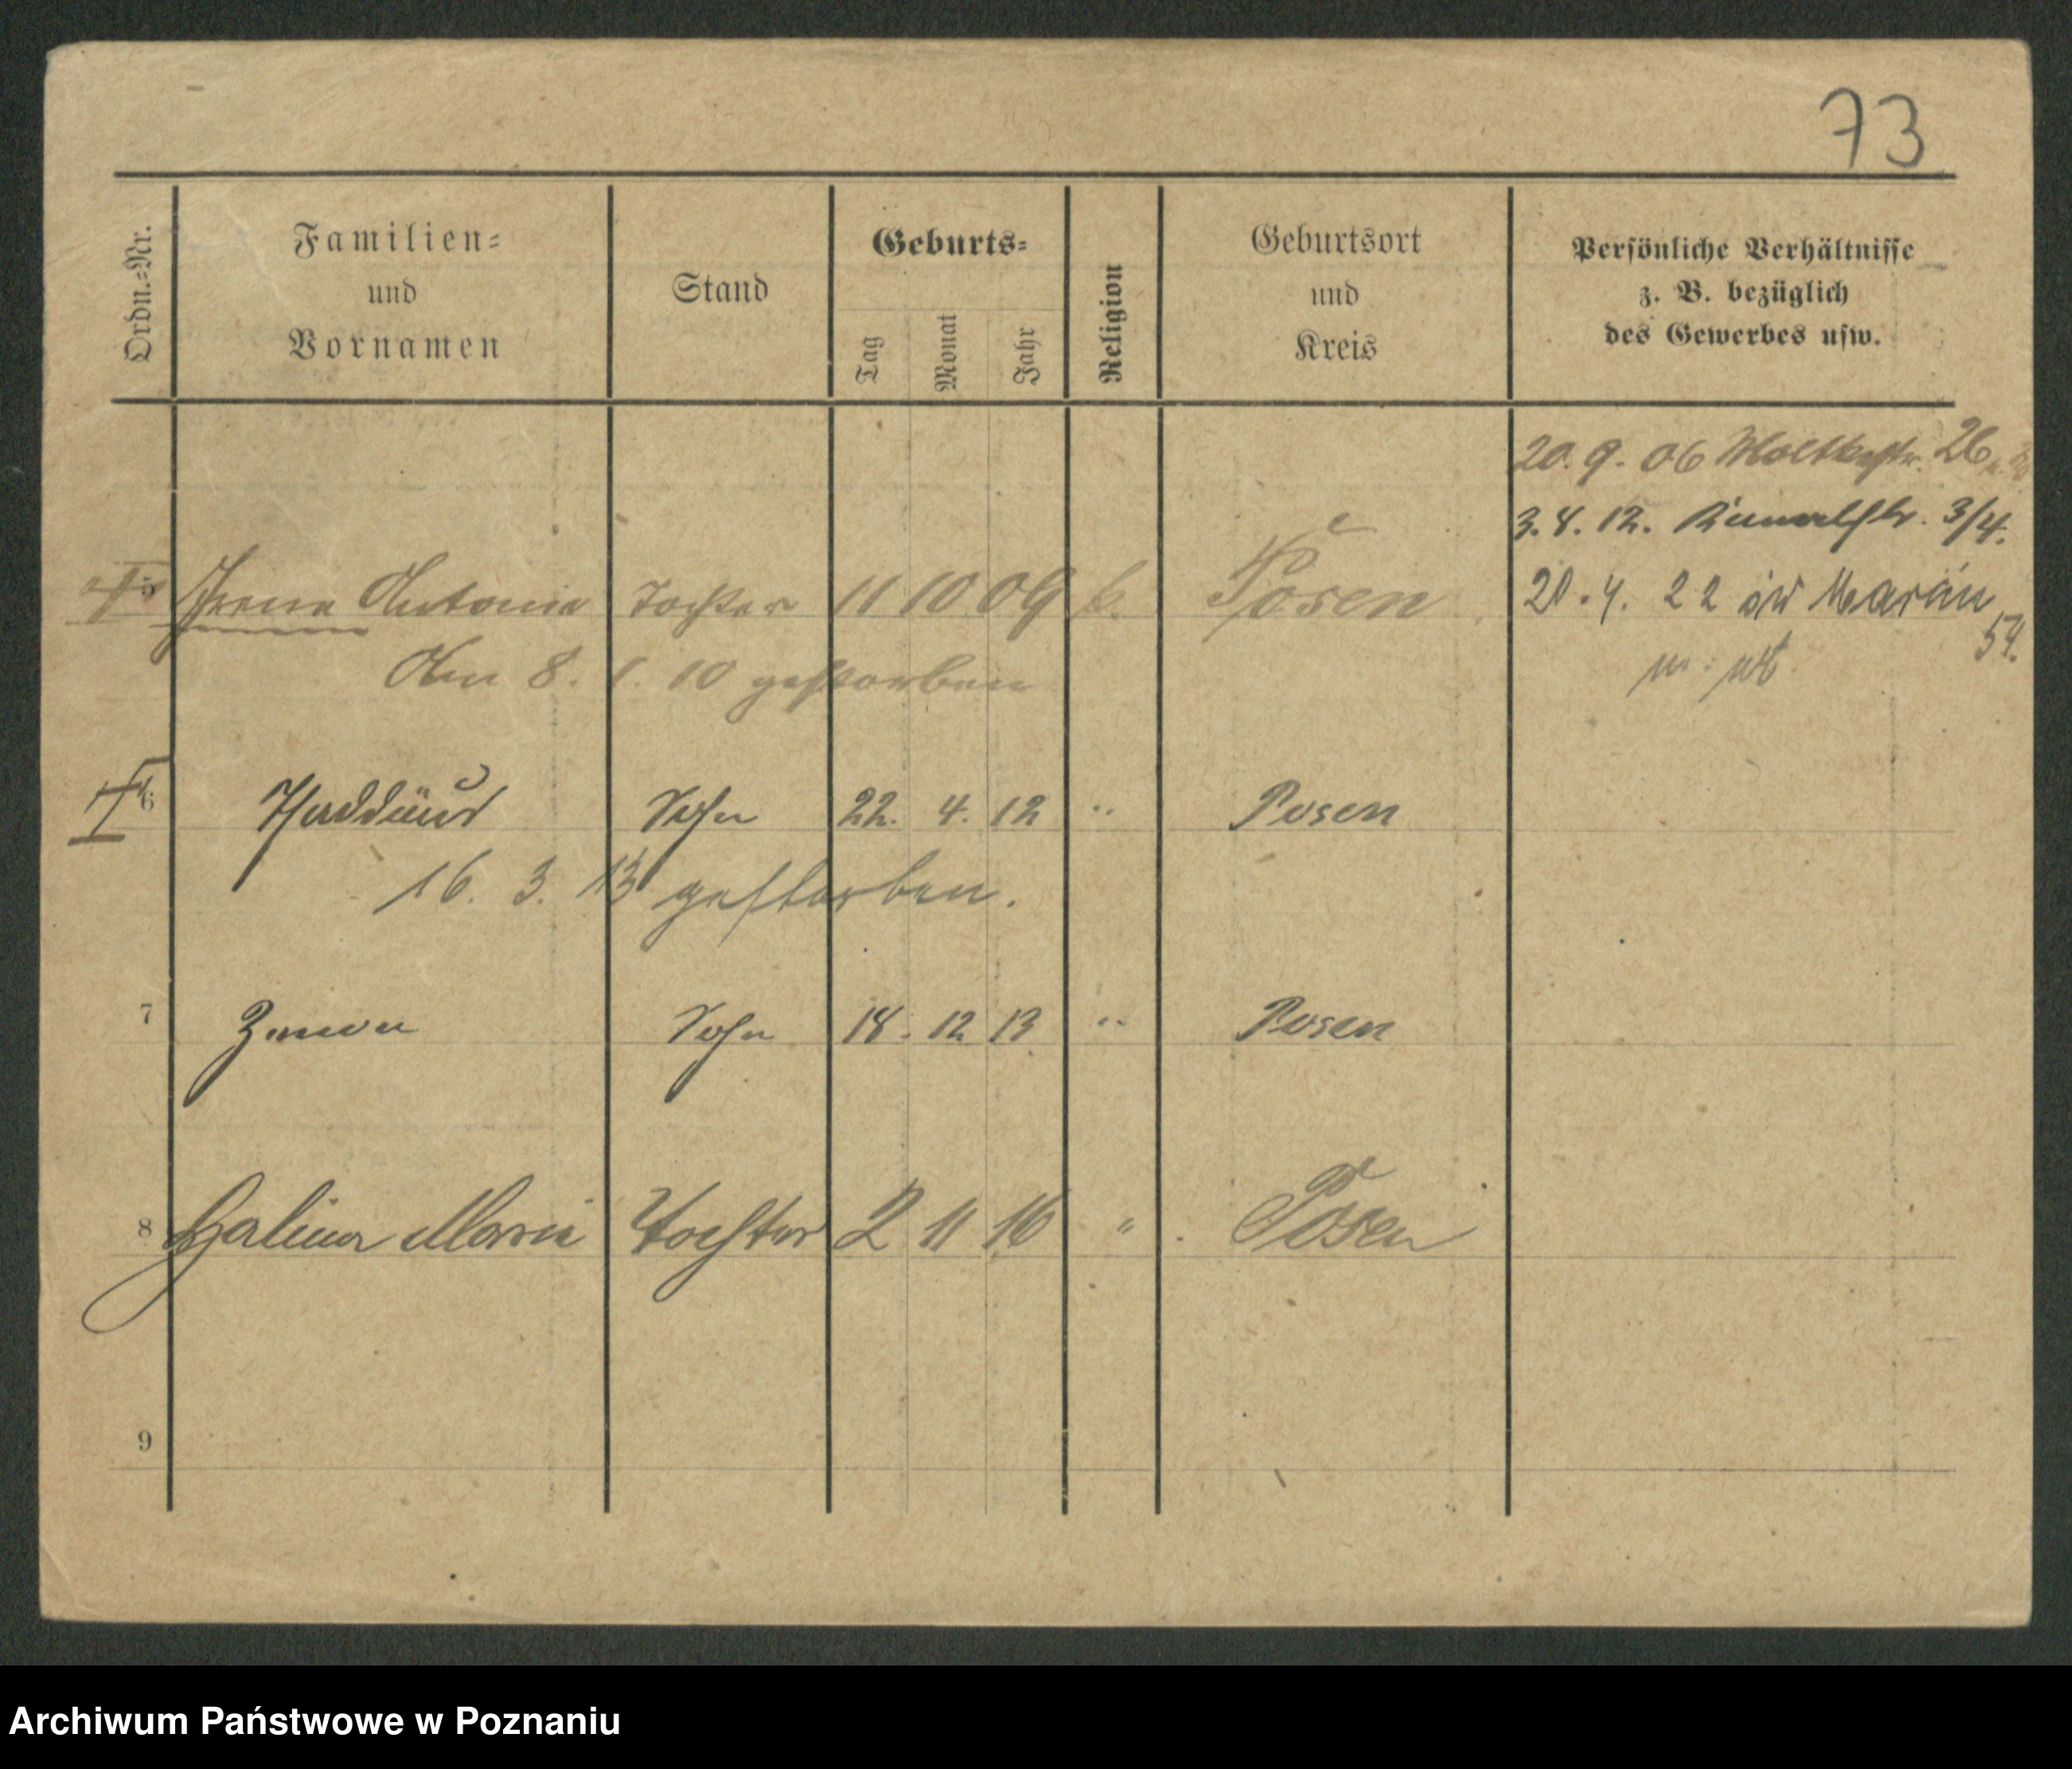 73
Ordn.-Nr.
Familien-
und
Vornamen
Stand
Geburts-
Tag
Monat
Jahr
Religion
Geburtsort
und
Kreis
Persönliche Verhältnisse
z. B. bezüglich
des Gewerbes usw.
20. 9. 06 Moltkestr. 26
3. 8. 12. 3/4.
5 Irene Antonie Tochter 11 10 09 k. Posen
20. 4. 22 św Marcin 54.
Am 8. 1. 10 gestorben
6 Thaddäus Sohn 22. 4. 12 " Posen
16. 3. 13 gestorben.
7 Zenon Sohn 18. 12 13 " Posen
8 Halina Maria Tochter 2 11 16 " Posen
9
Archiwum Państwowe w Poznaniu